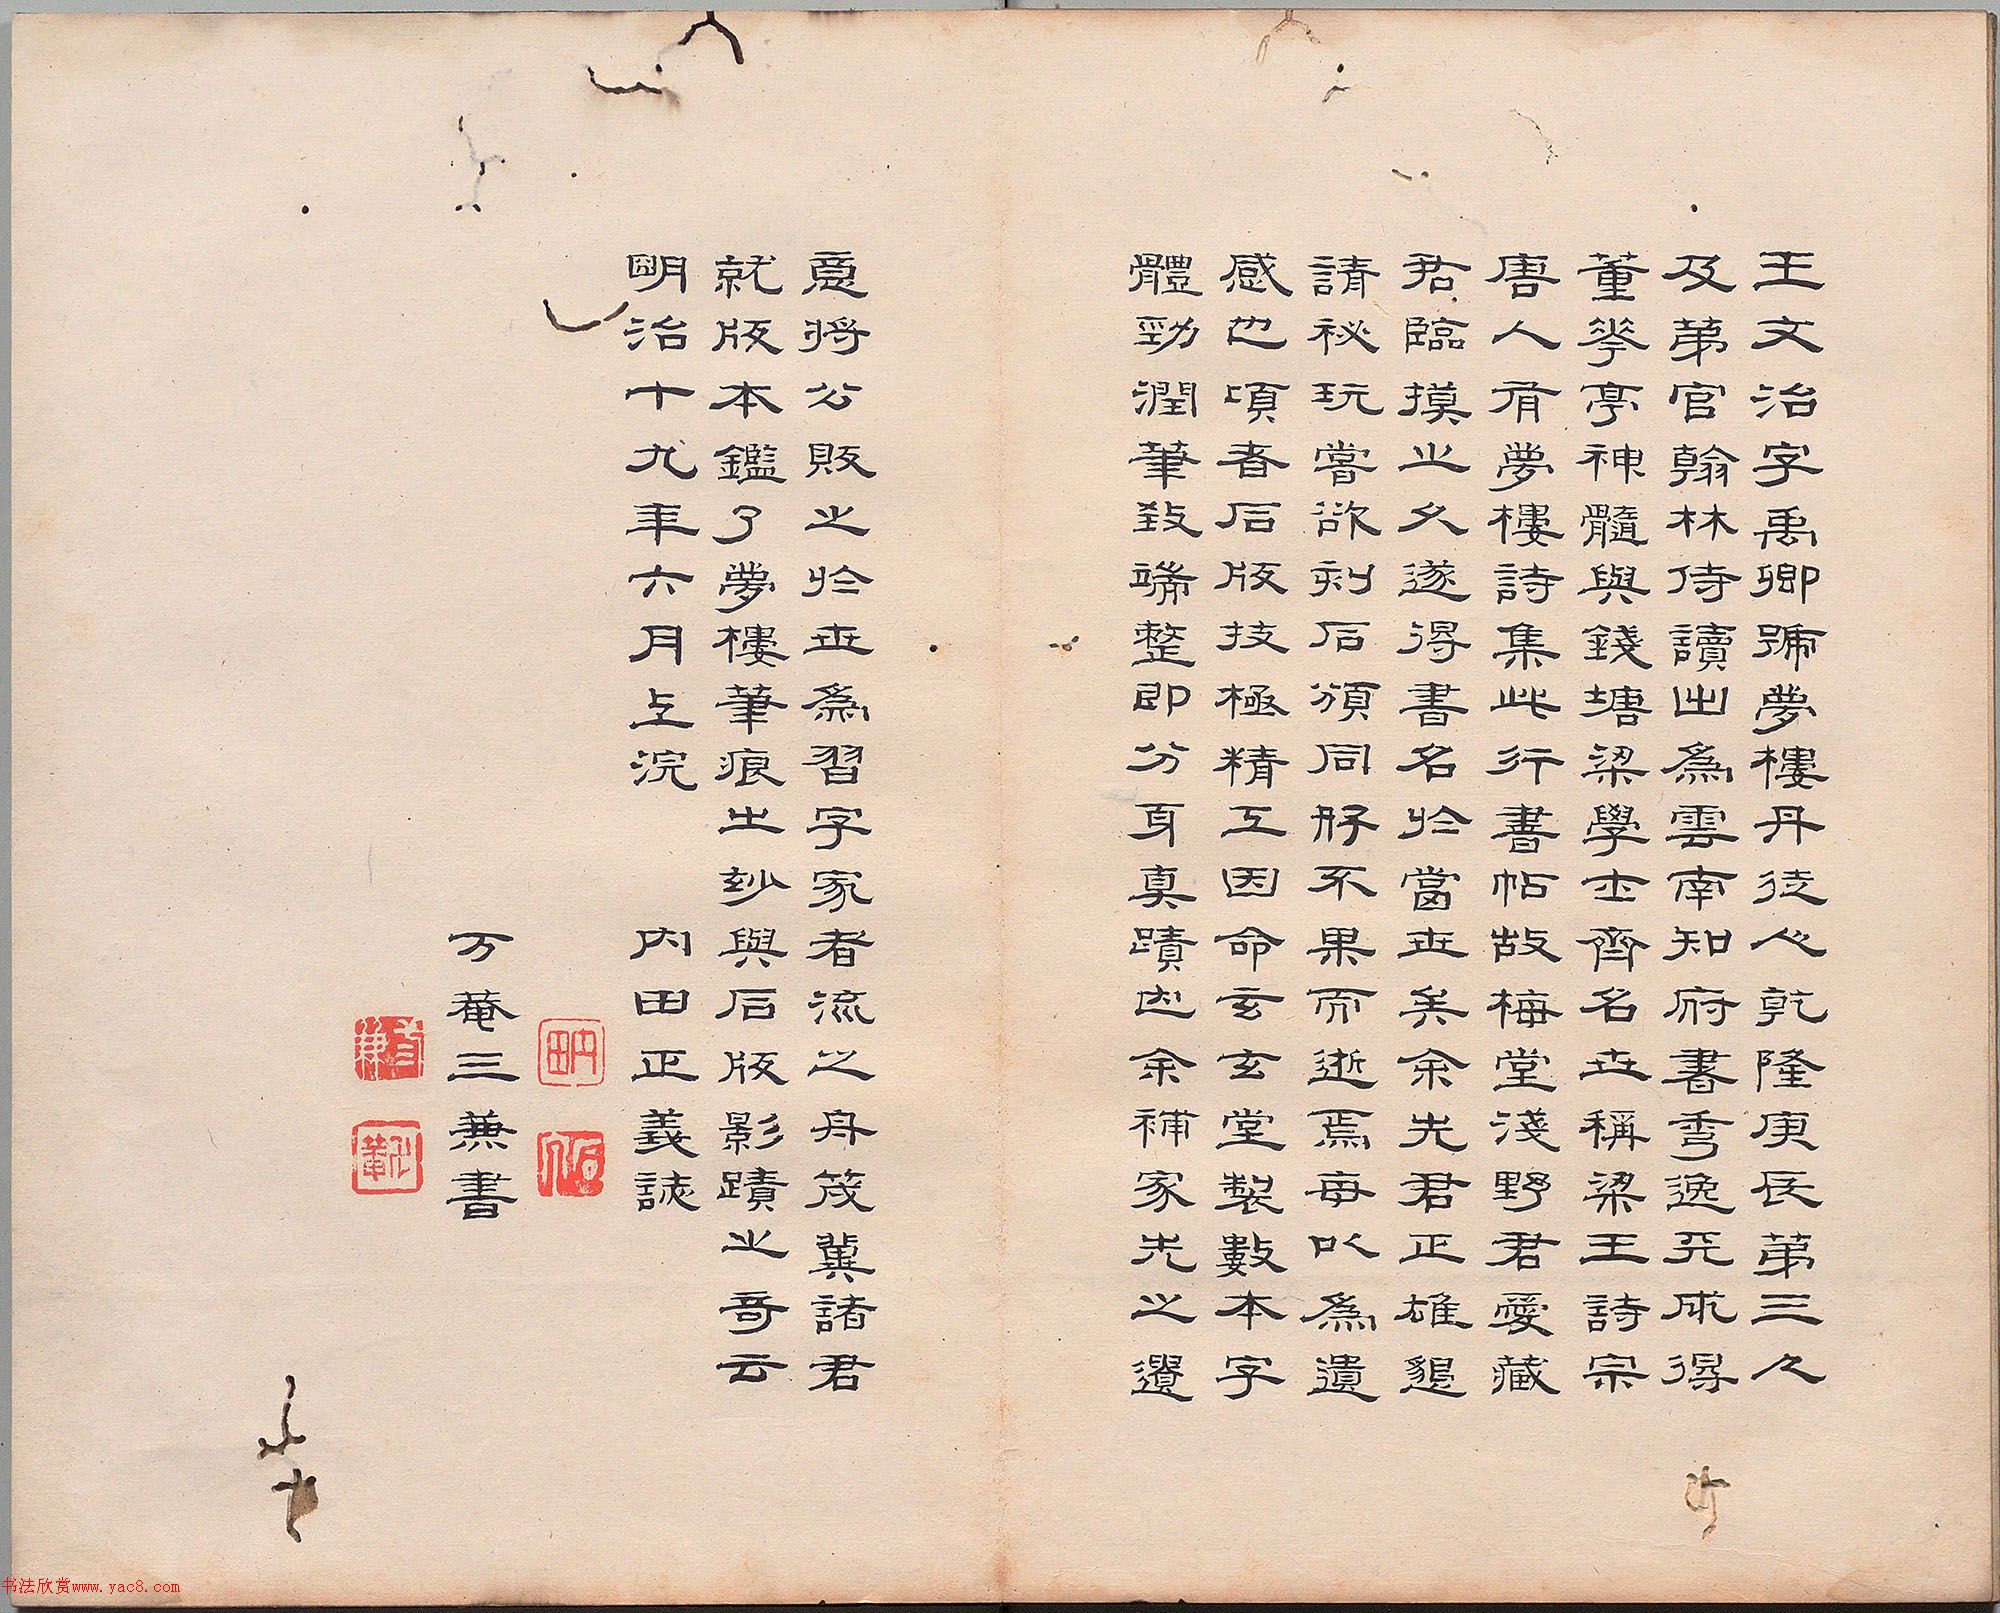 王文治字禹卿號夢樓丹徒人乾隆庚辰第三人
及第官翰林侍讀出爲雲南知府書秀逸天成得
董華亭神髓與錢塘梁學士齊名世稱梁王詩宗
唐人有夢樓詩集此行書帖故梅堂淺野君愛藏
君臨摸之久遂得書名於當世矣余先君正雄懇
請祕玩嘗欲刻石頒同好不果而逝焉每以爲遺
感也頃者石版技極精工因命玄玄堂製數本字
體勁潤筆致端整即分身真蹟也余補家先之遺
意將公販之於世爲習字家者流之舟筏冀諸君
就版本鑑了夢樓筆痕之妙與石版影蹟之奇云
明治十九年六月上浣 內田正義誌
万菴三兼書
书法欣赏www.yac8.com